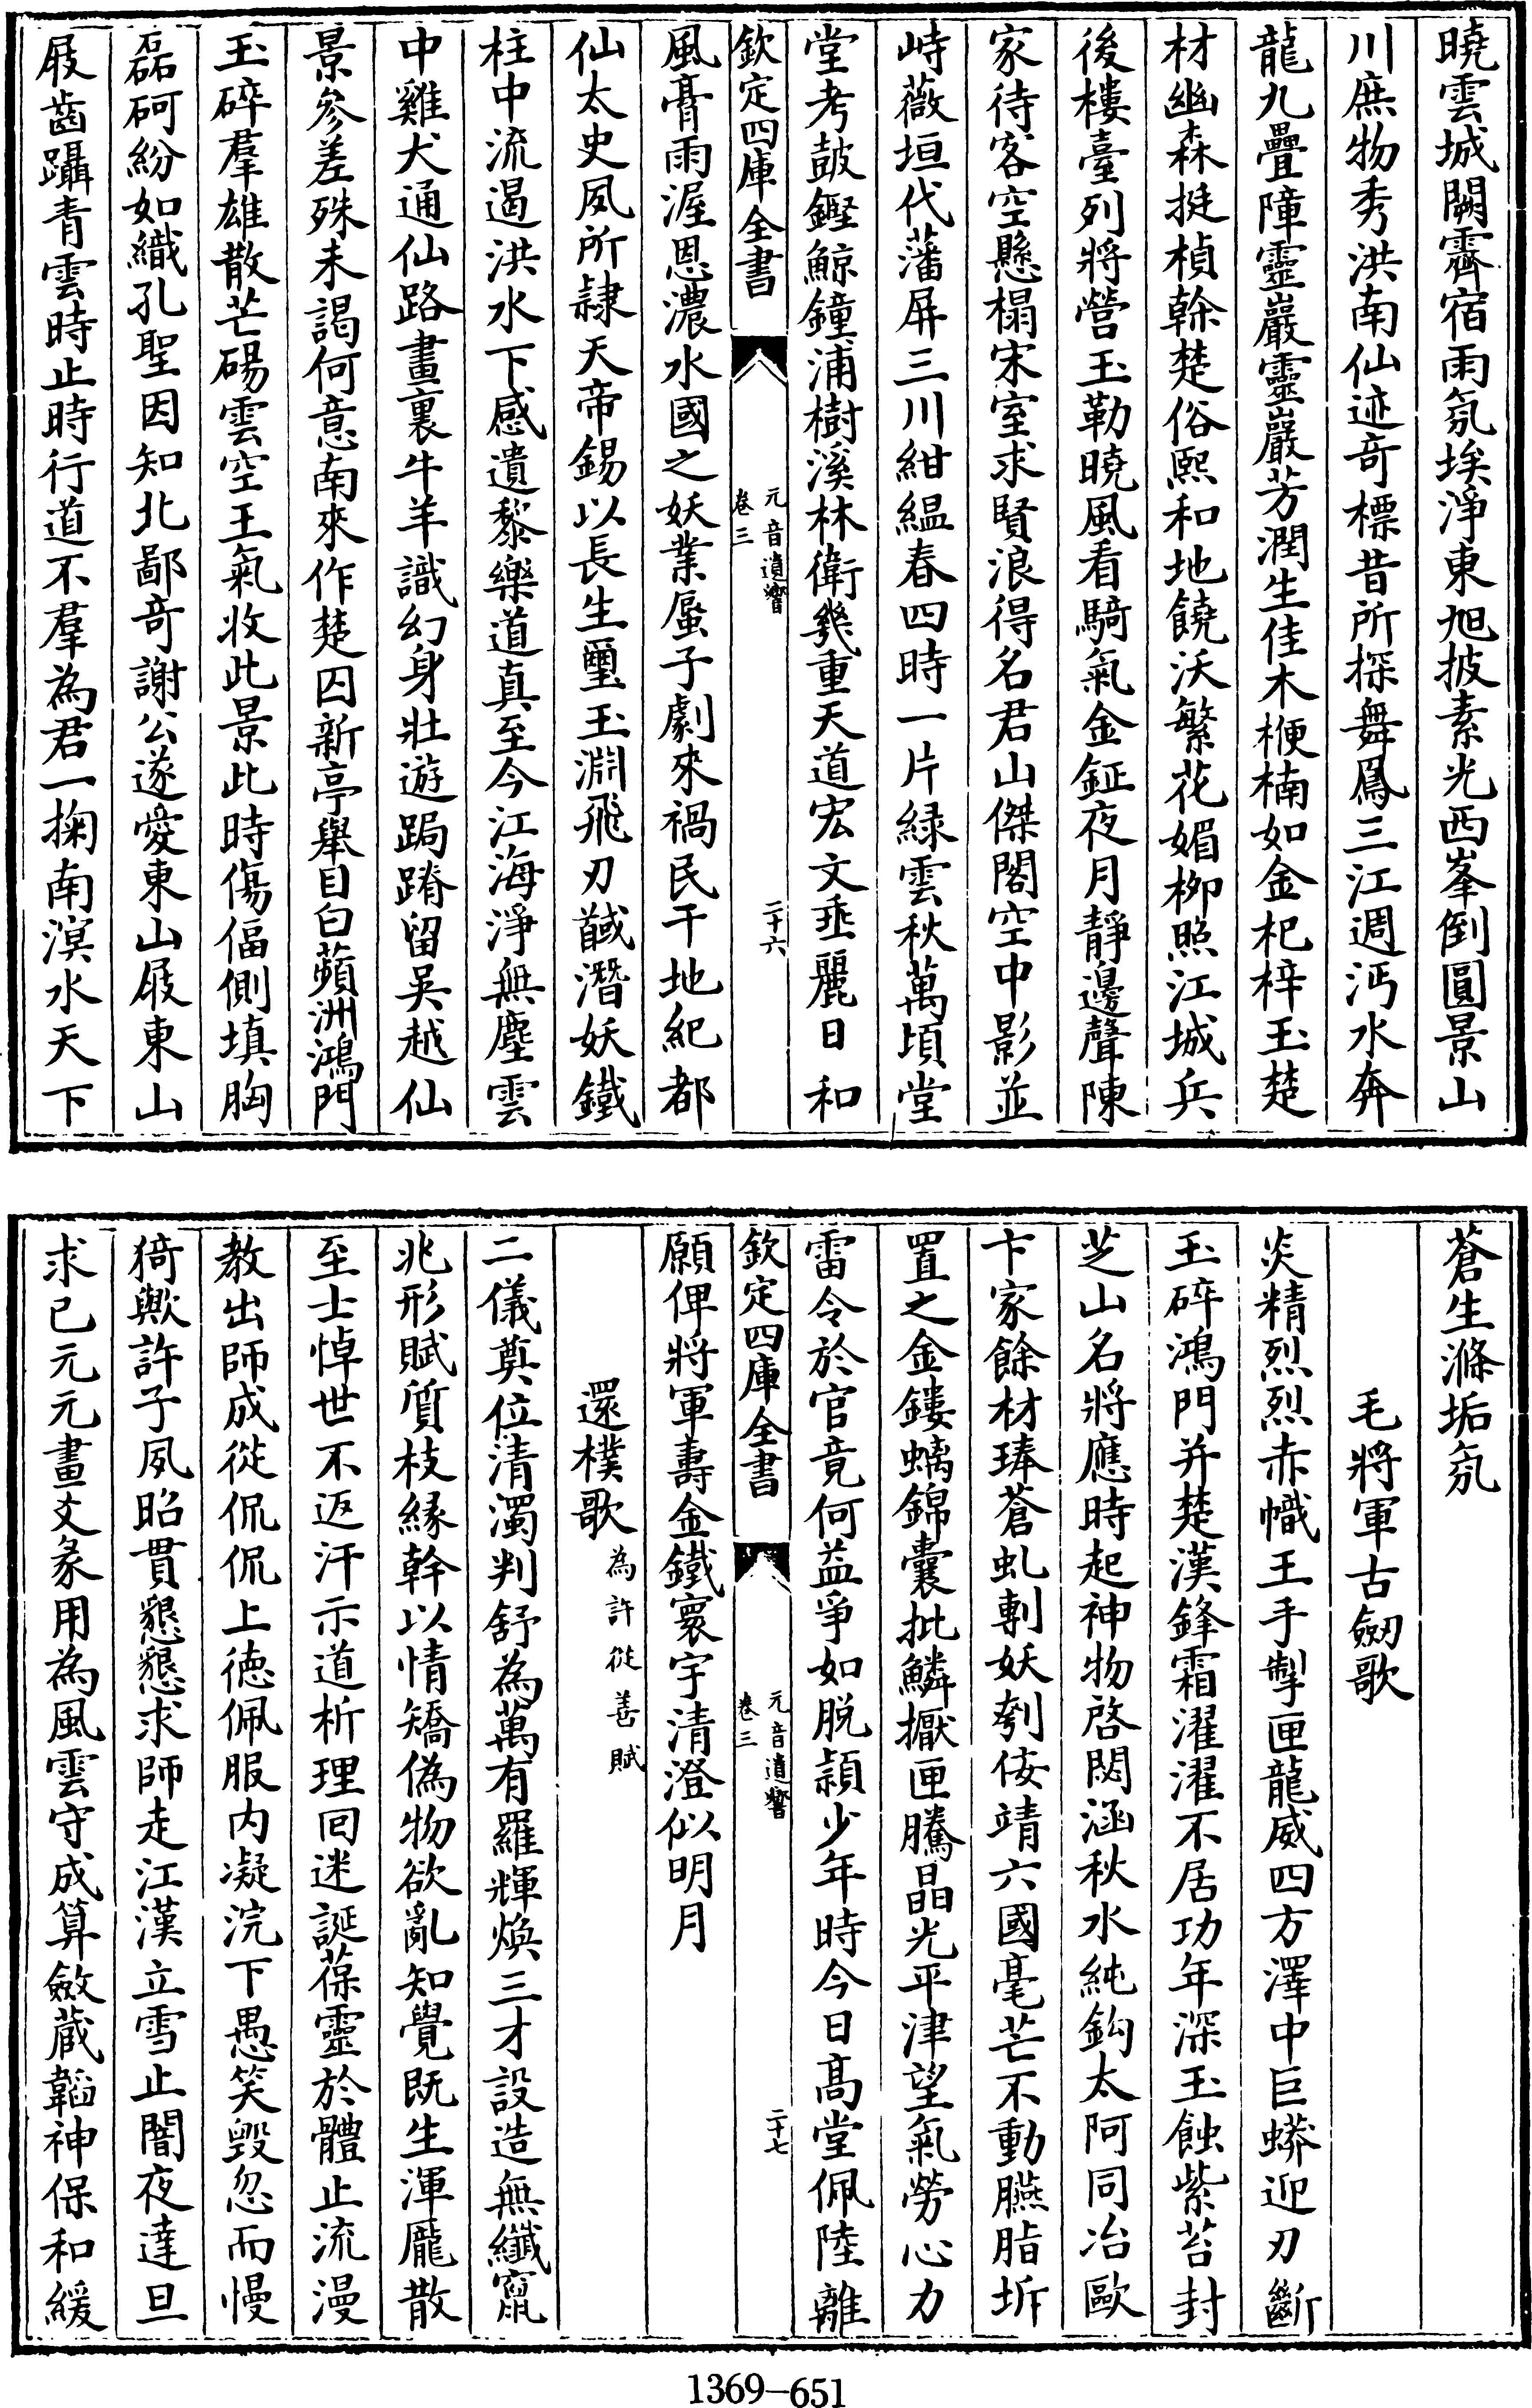 曉雲城闕霽宿雨氛埃淨東旭披素光西峯倒圓景山
川庶物秀洪南仙迹竒標昔所探舞鳳三江週沔水奔
龍九疊障靈巖靈巖芳潤生佳木楩楠如金杞梓玉楚
材幽森挺楨榦楚俗熙和地饒沃繁花媚柳照江城兵
後樓臺列將營玉勒曉風看騎氣金鉦夜月靜邊聲陳
家待客空懸榻宋室求賢浪得名君山傑閣空中影並
峙薇垣代藩屏三川紺緼春四時一片緑雲秋萬頃堂
堂考鼓鏗鯨鐘浦樹溪林衛幾重天道宏文垂麗日和
欽定四庫全書
元音遺響
卷三
二十六
風膏雨渥恩濃水國之妖業蜃子劇來禍民干地紀都
仙太史夙所隷天帝錫以長生璽玉淵飛刃馘潛妖鐵
柱中流遏洪水下感遺黎樂道真至今江海淨無塵雲
中雞犬通仙路畫裏牛羊識幻身壯遊跼蹐留吳越仙
景參差殊未謁何意南來作楚囚新亭舉目白蘋洲鴻門
玉碎羣雄散芒碭雲空王氣收此景此時傷偪側填胸
磊砢紛如織孔聖因知北鄙竒謝公遂愛東山屐東山
屐齒躡青雲時止時行道不羣為君一掬南溟水天下
蒼生滌垢氛
毛將軍古劒歌
炎精烈烈赤幟王手掣匣龍威四方澤中巨蟒迎刃斷
玉碎鴻門并楚漢鋒霜濯濯不居功年深玉蝕紫苔封
芝山名將應時起神物啓閟涵秋水純鈎太阿同冶歐
卞家餘材琫蒼虬剸妖刳佞靖六國毫芒不動臙脂坼
置之金鏤螭錦囊批鱗擫匣騰晶光平津望氣勞心力
雷令於官竟何益爭如脱頴少年時今日髙堂佩陸離
欽定四庫全書
元音遺響
卷三
二十七
願俾將軍壽金鐵寰宇清澄似明月
還樸歌為許從善賦
二儀奠位清濁判舒為萬有羅輝煥三才設造無纖竄
兆形賦質枝緣幹以情矯偽物欲亂知覺既生渾厖散
至士悼世不返汗示道析理回迷誕葆靈於體止流漫
教出師成從侃侃上徳佩服内凝浣下愚笑毁忽而慢
猗歟許子夙昭貫懇懇求師走江漢立雪止闇夜達旦
求已元元畫爻彖用為風雲守成算斂蔵韜神保和緩
1369—651